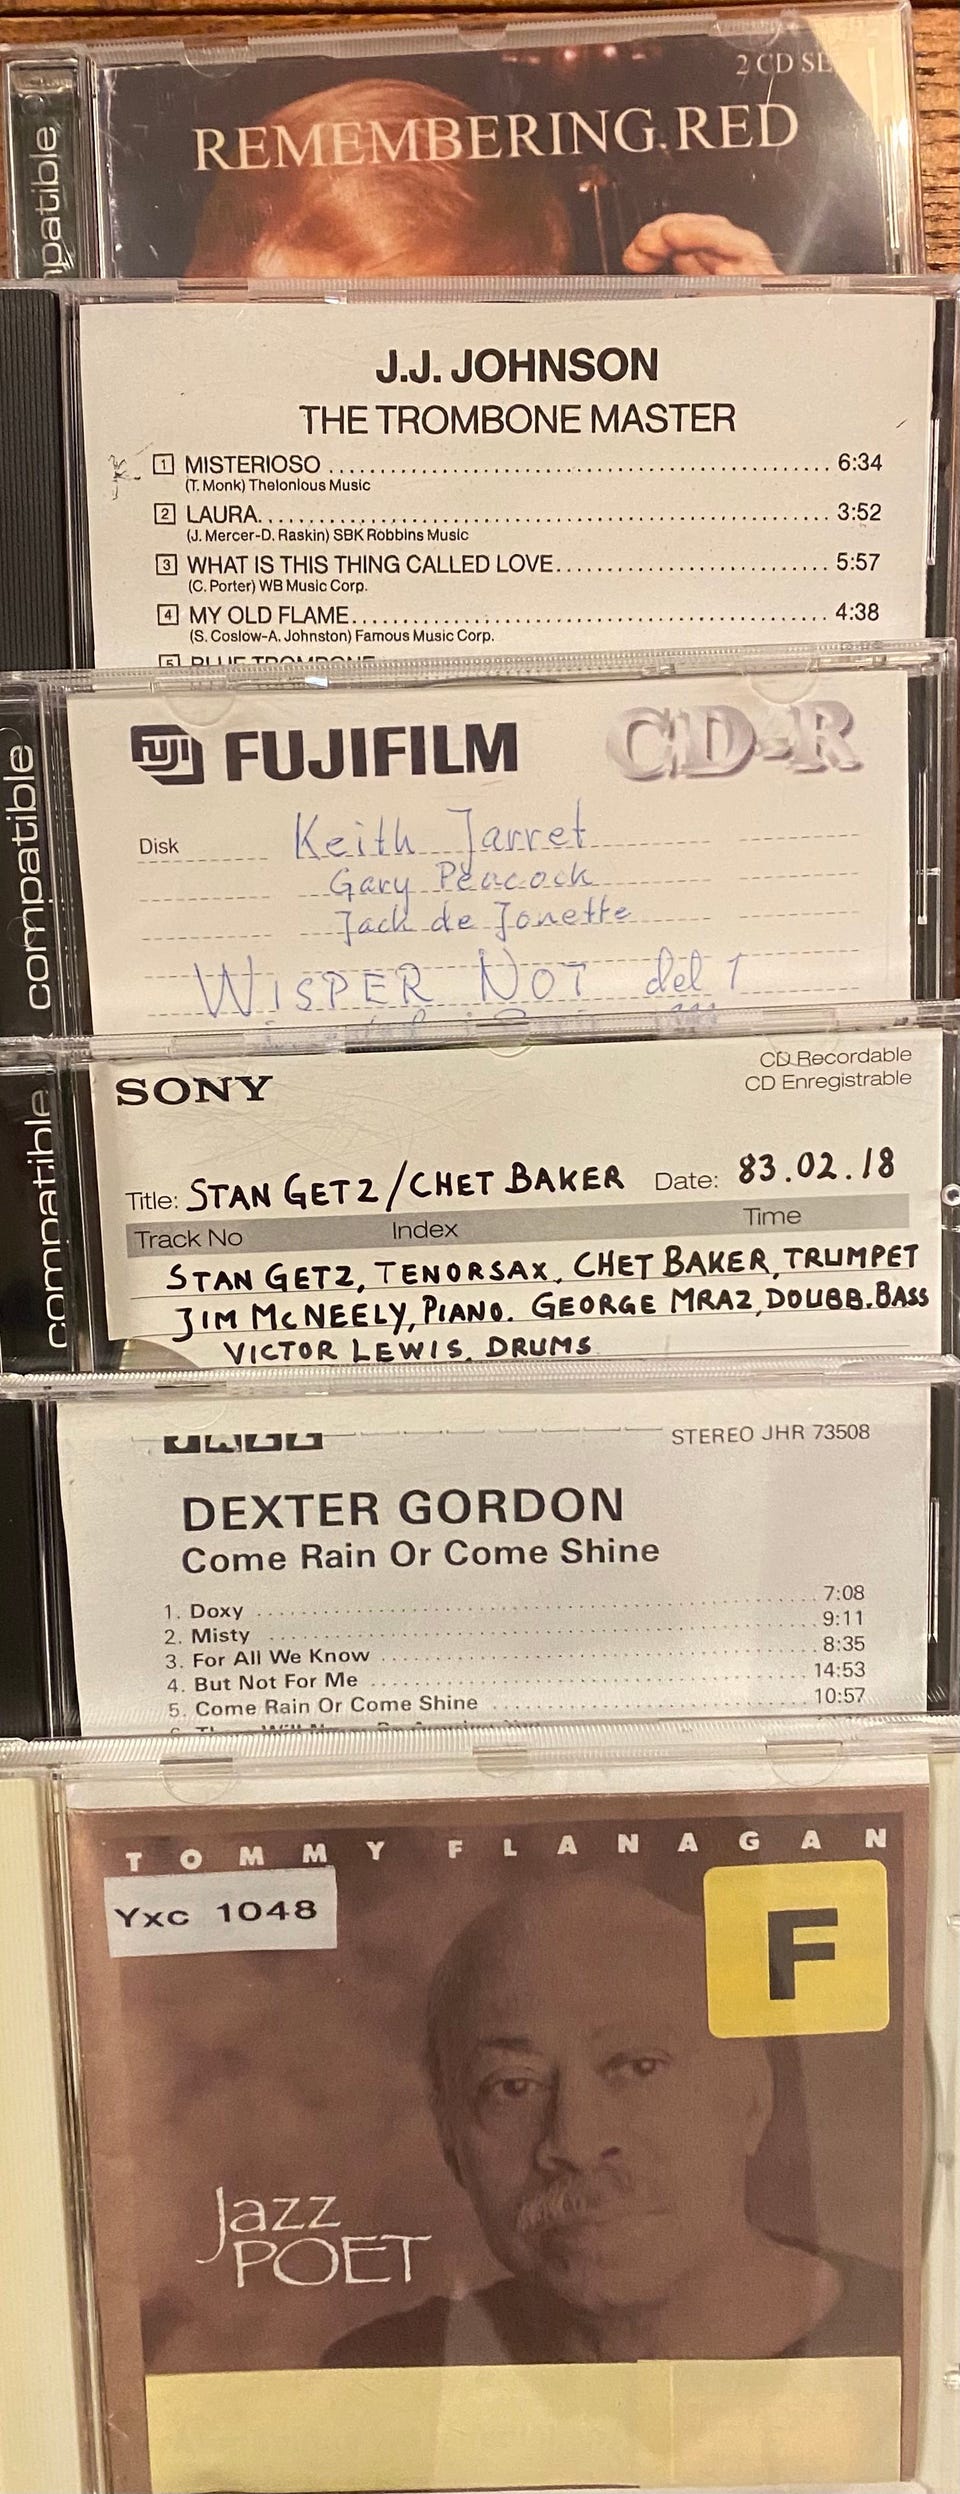 compatible
2 CD SE
REMEMBERING RED
J.J. JOHNSON
THE TROMBONE MASTER
1 MISTERIOSO 6:34
(T. Monk) Thelonious Music
2 LAURA 3:52
(J. Mercer-D. Raskin) SBK Robbins Music
3 WHAT IS THIS THING CALLED LOVE 5:57
(C. Porter) WB Music Corp.
4 MY OLD FLAME 4:38
(S. Coslow-A. Johnston) Famous Music Corp.
5 BLUE TROMBONE
compatible
FUJI FUJIFILM CD-R
Disk Keith Jarret
Gary Peacock
Jack de Jonette
WISPER NOT del 1
compatible
SONY
CD Recordable
CD Enregistrable
Title: STAN GETZ/CHET BAKER Date: 83.02.18
Track No Index Time
STAN GETZ, TENORSAX, CHET BAKER, TRUMPET
JIM McNEELY, PIANO. GEORGE MRAZ, DOUBB.BASS
VICTOR LEWIS, DRUMS
STEREO JHR 73508
DEXTER GORDON
Come Rain Or Come Shine
1. Doxy 7:08
2. Misty 9:11
3. For All We Know 8:35
4. But Not For Me 14:53
5. Come Rain Or Come Shine 10:57
TOMMY FLANAGAN
Yxc 1048
F
Jazz
POET